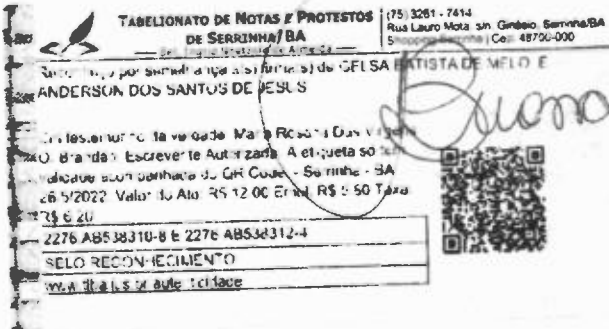 TABELIONATO DE NOTAS E PROTESTOS
DE SERRINHA/BA
(75) 3261 - 7414
Rua Lauro Mota, s/n, Ginásio, Serrinha/BA
Shopping Serrinha | Cep: 48700-000
Reconheço por semelhança a(s) firma(s) de GELSA BATISTA DE MELO E
ANDERSON DOS SANTOS DE JESUS
Em testemunho da verdade. Maria Rosana Dos
O. Brandão Escrevente Autorizada. A etiqueta so tem
validade acompanhada do QR Code. - Serrinha - BA
26/5/2022 Valor do Ato: R$ 12,00 Emol: R$ 5,60 Taxa
R$ 6,20
2276.AB538310-8 E 2276.AB538312-4
SELO RECONHECIMENTO
www.tjba.jus.br/autenticidade